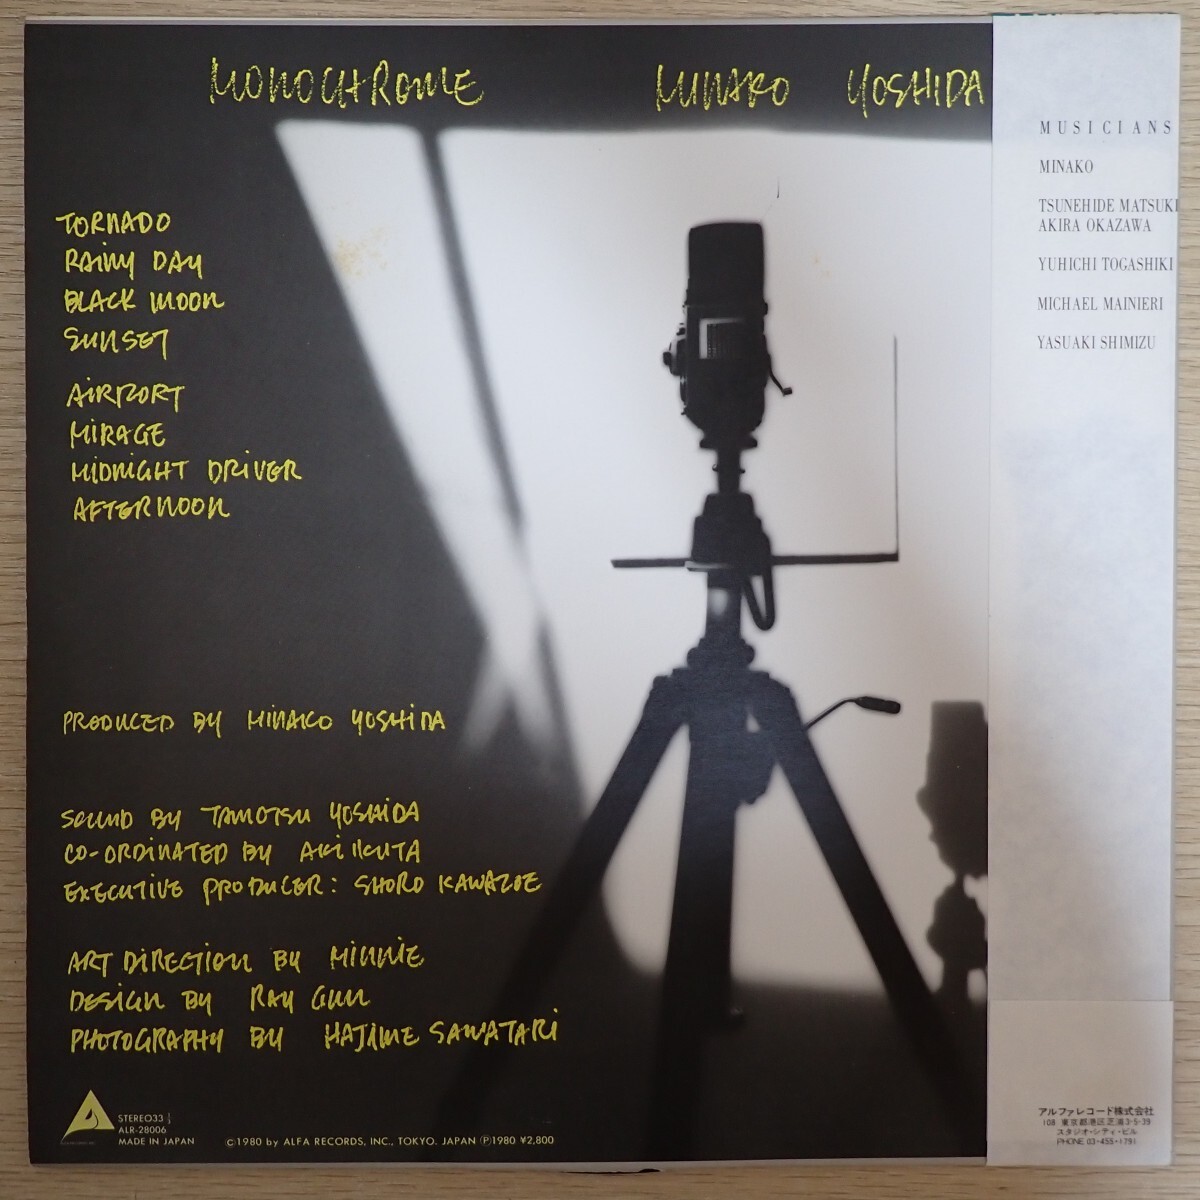 MONOCHROME MINAKO YOSHIDA
TORNADO
RAINY DAY
BLACK MOON
SUNSET
AIRPORT
MIRAGE
MIDNIGHT DRIVER
AFTERNOON
PRODUCED BY MINAKO YOSHIDA
SOUND BY TAMOTSU YOSHIDA
CO-ORDINATED BY AKI IKUTA
EXECUTIVE PRODUCER: SHORO KAWAZOE
ART DIRECTION BY MINNIE
DESIGN BY RAY GUN
PHOTOGRAPHY BY HAJIME SAWATARI
STEREO33 1/3
ALR-28006
MADE IN JAPAN
©1980 by ALFA RECORDS, INC., TOKYO. JAPAN Ⓟ1980 ¥2,800
MUSICIANS
MINAKO
TSUNEHIDE MATSUKI
AKIRA OKAZAWA
YUHICHI TOGASHIKI
MICHAEL MAINIERI
YASUAKI SHIMIZU
アルファレコード株式会社
108 東京都港区芝浦3-5-39
スタジオ・シティ・ビル
PHONE 03-455-1791